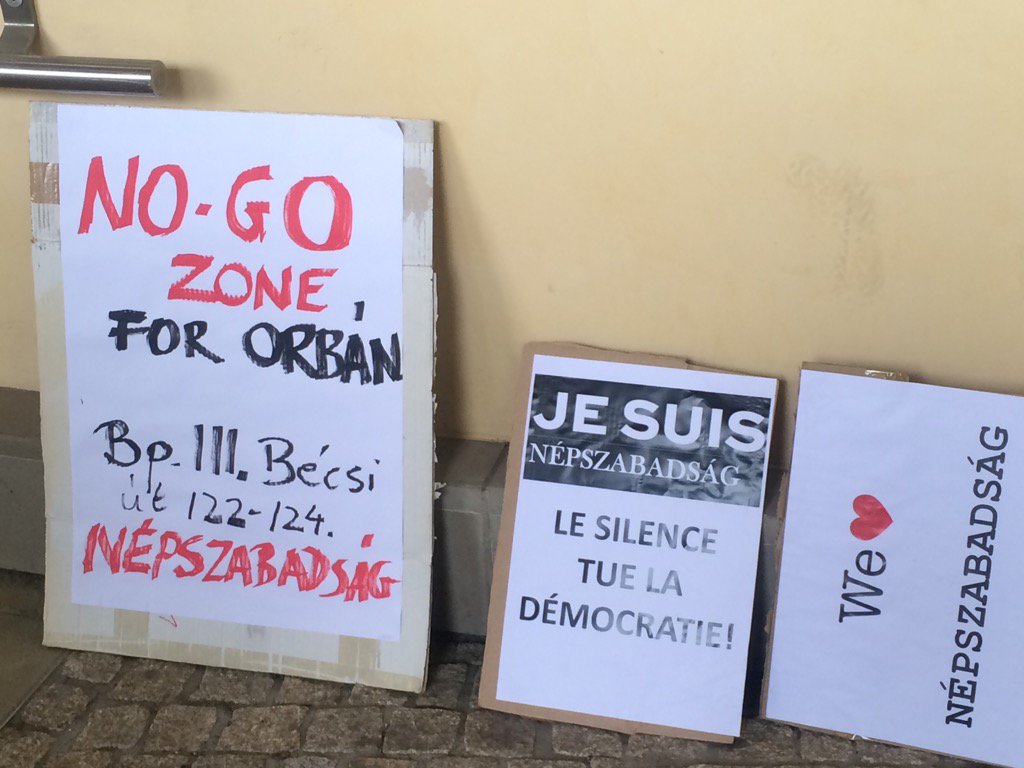 NO-GO
ZONE
FOR ORBÁN
Bp. III. Bécsi
út 122-124.
NÉPSZABADSÁG
JE SUIS
NÉPSZABADSÁG
LE SILENCE
TUE LA
DÉMOCRATIE!
We ♥
NÉPSZABADSÁG